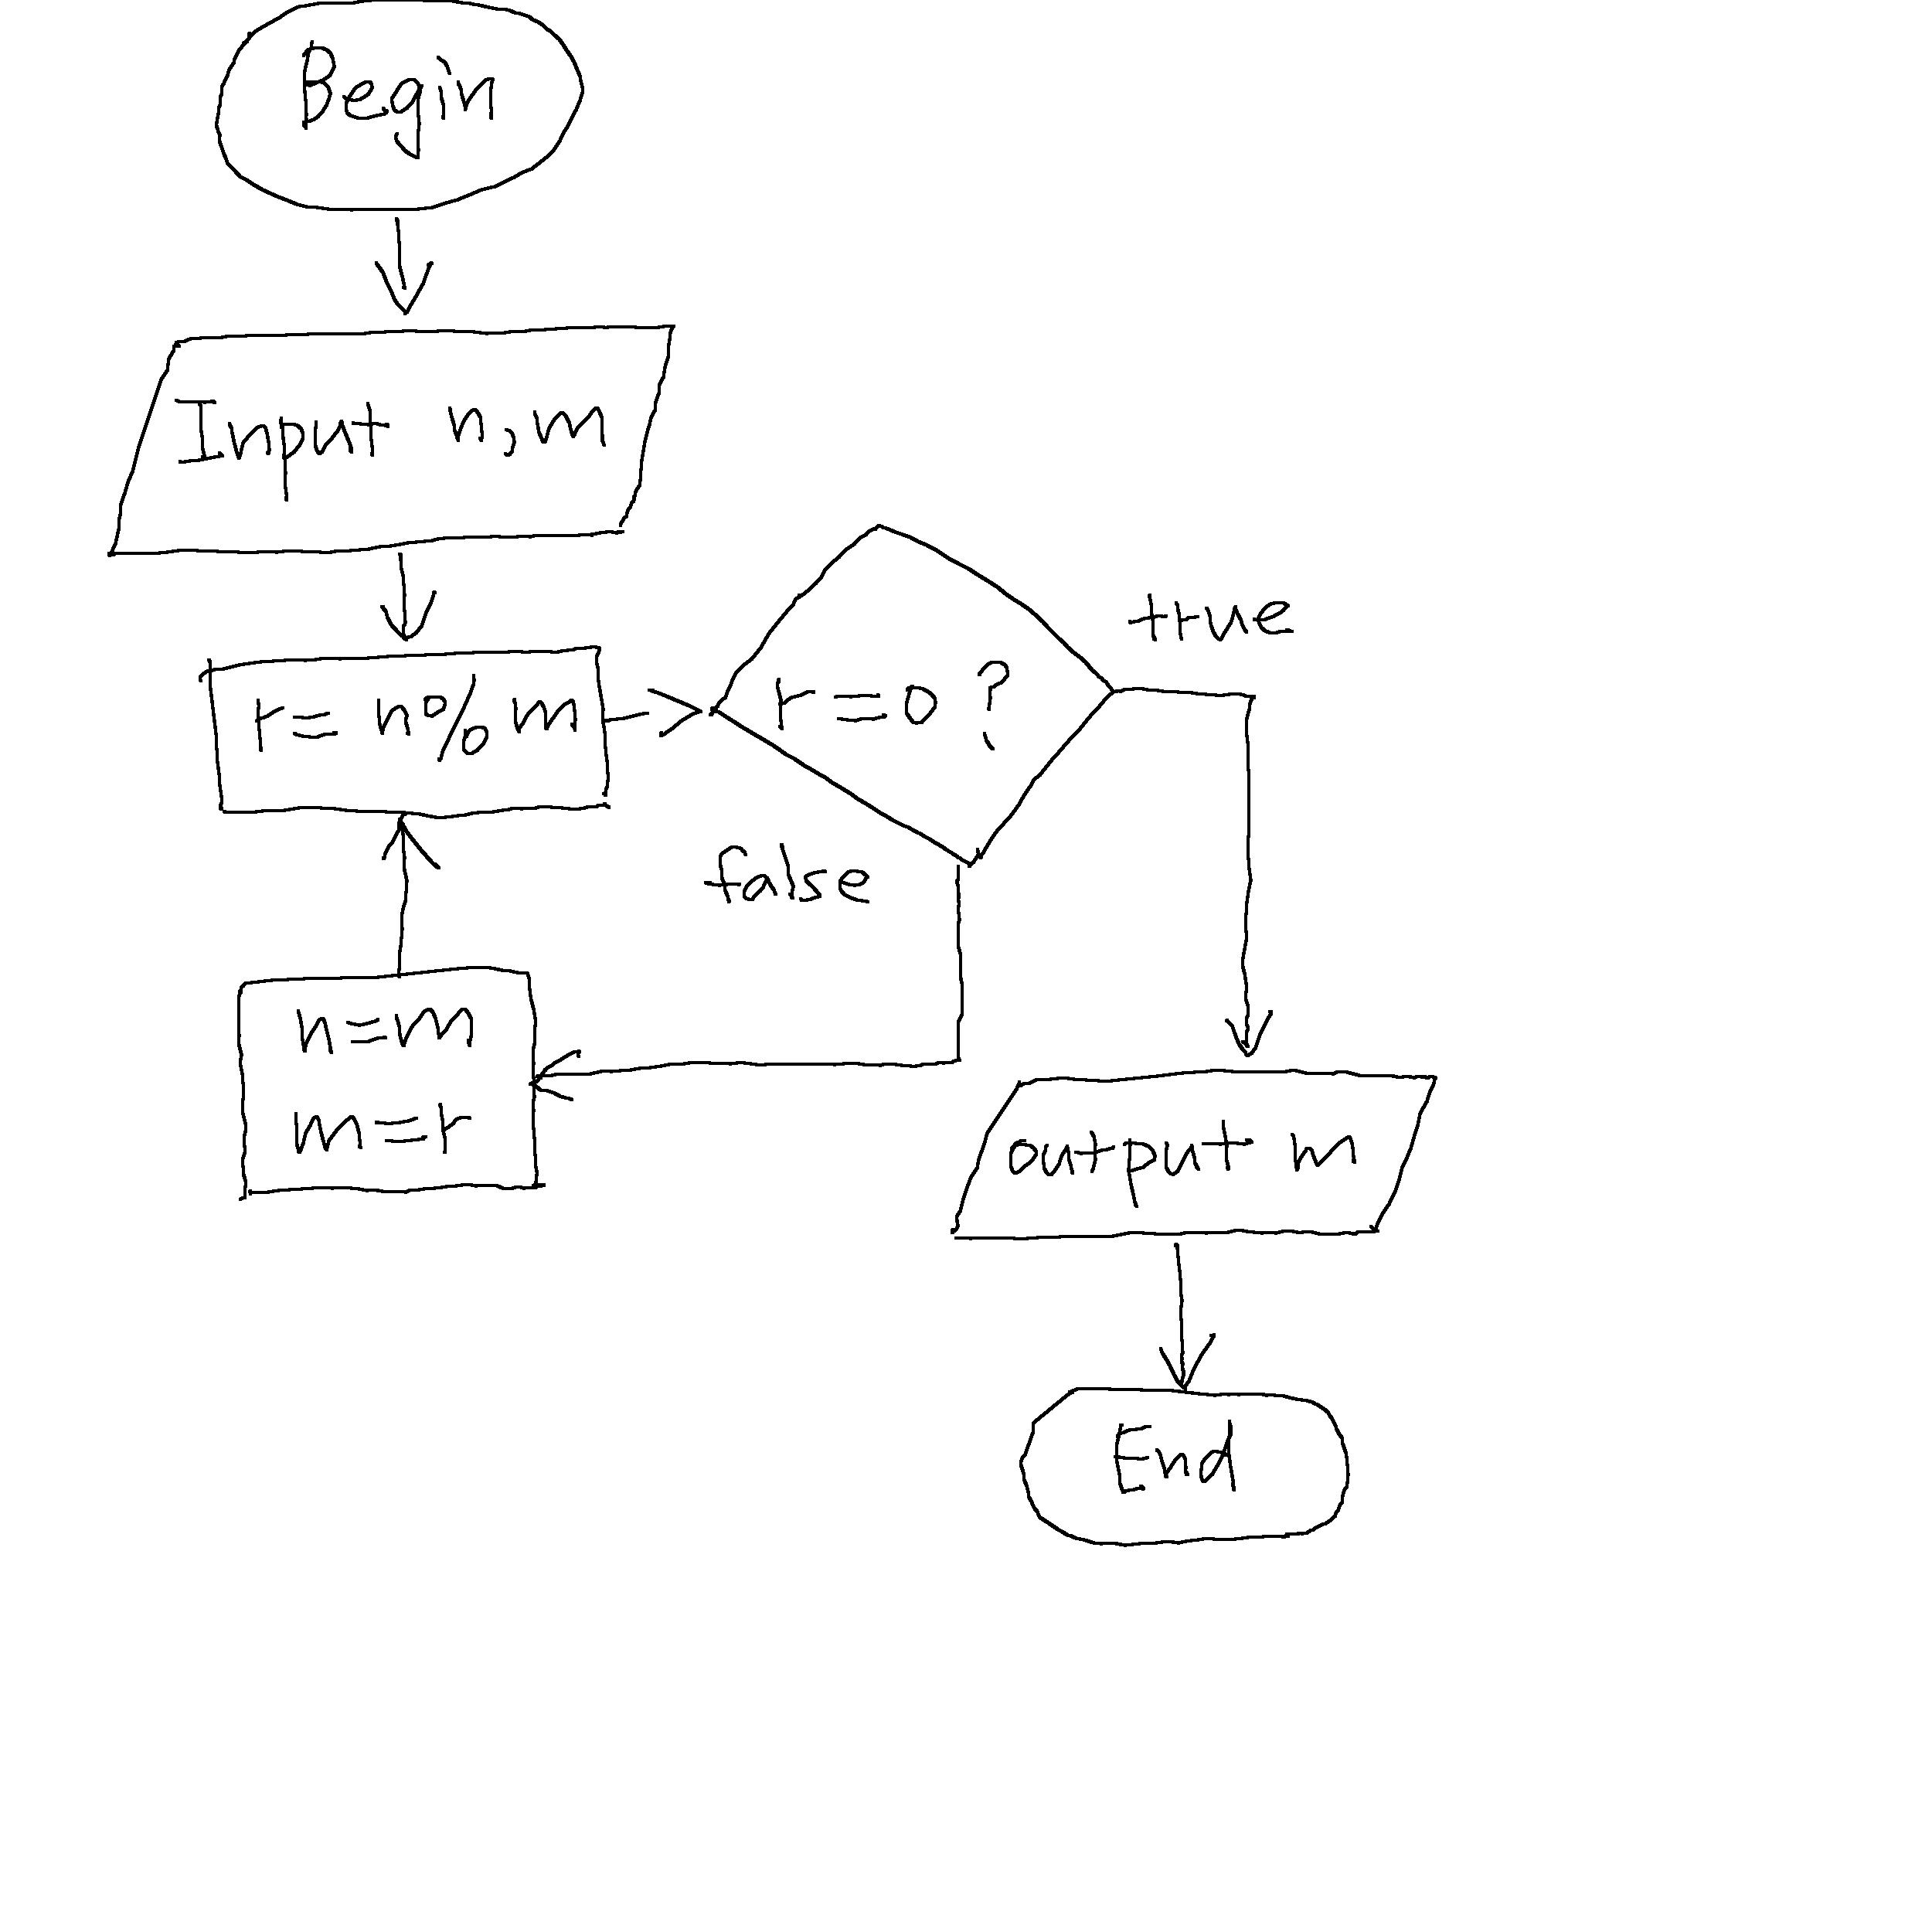 Begin
Input n,m
r=n%m
r=0?
true
false
n=m
m=r
output m
End